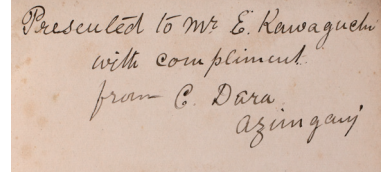 Presented to Mr E. Kawaguchi
with compliment
from C. Dara
Azimganj